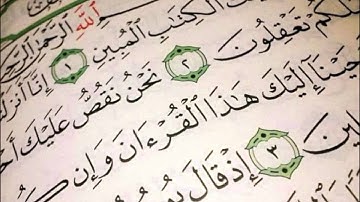 ٱللَّهِ ٱلرَّحْمَٰنِ
ٱلْكِتَٰبِ ٱلْمُبِينِ ١ إِنَّآ أَنزَلْ
لَّكُمْ تَعْقِلُونَ ٢ نَحْنُ نَقُصُّ عَلَيْكَ أَحْ
حَيْنَآ إِلَيْكَ هَٰذَا ٱلْقُرْءَانَ وَإِن كُ
ينَ ٣ إِذْ قَالَ يُو